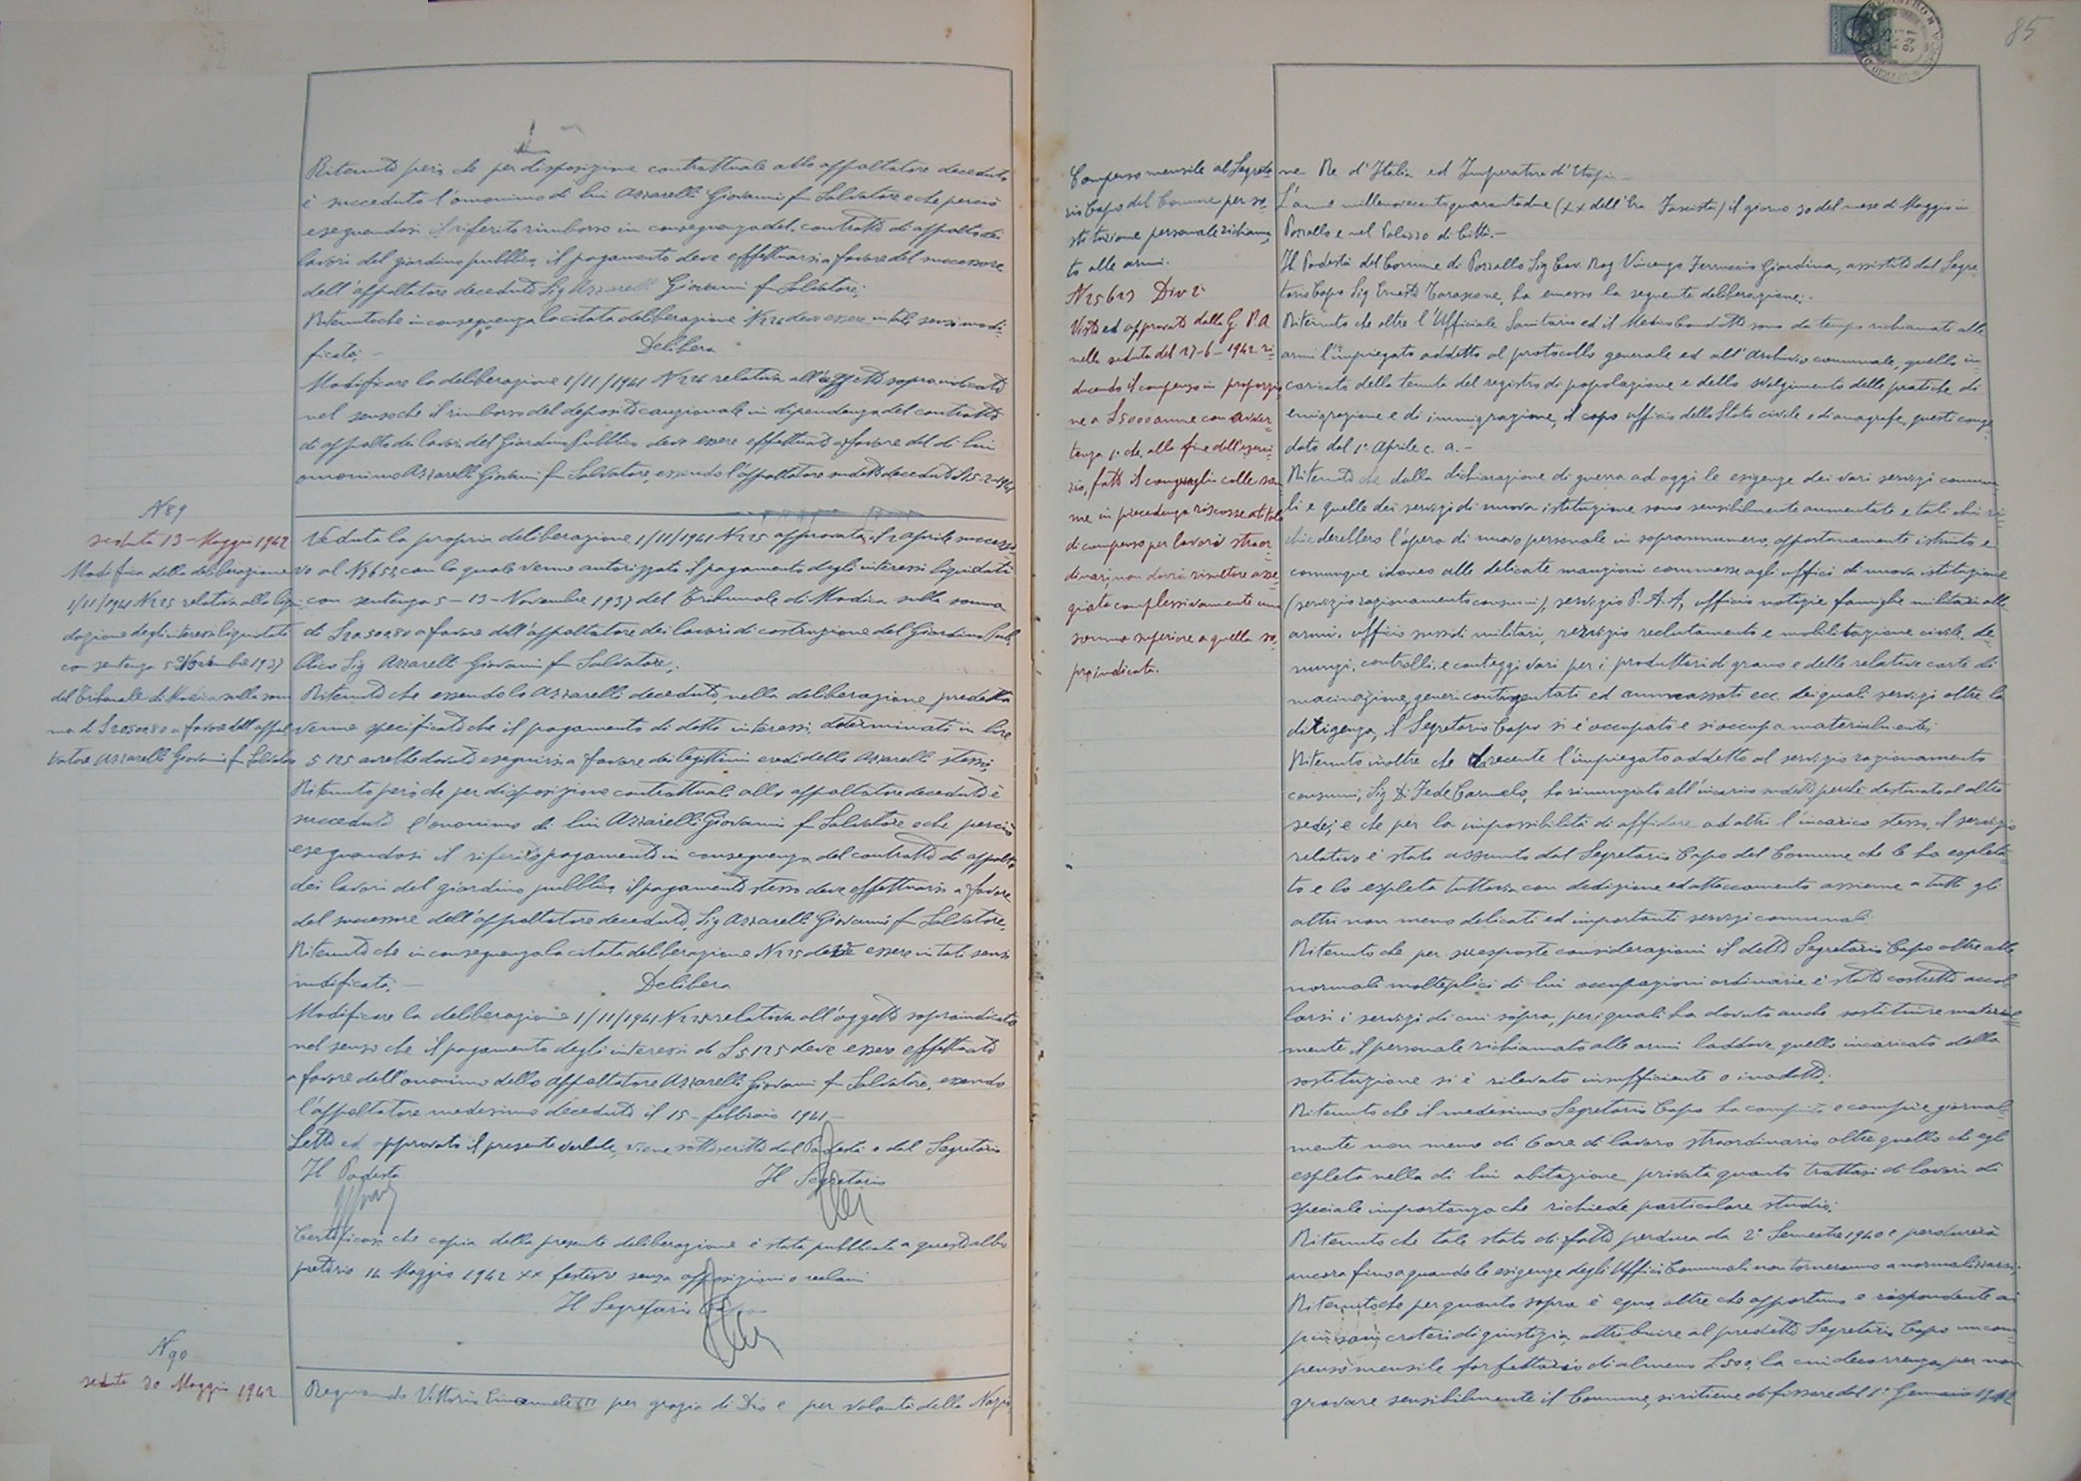 Ritenuto però che per disposizione contrattuale allo appaltatore deceduto
è succeduto l'omonimo di lui Azzarelli Giovanni fu Salvatore e che perciò
eseguendosi il riferito rimborso in conseguenza del contratto di appalto dei
lavori del giardino pubblico, il pagamento deve effettuarsi a favore del successore
dell'appaltatore deceduto Sig Azzarelli Giovanni fu Salvatore;
Ritenuto che in conseguenza la citata deliberazione N 226 deve essere in tali sensi modi-
ficata; -
Delibera
Modificare la deliberazione 1/11/1941 N 226 relativa all'oggetto sopraindicato
nel senso che il rimborso del deposito cauzionale in dipendenza del contratto
di appalto dei lavori del Giardino Pubblico deve essere effettuato a favore del di lui
omonimo Azzarelli Giovanni fu Salvatore, essendo l'appaltatore suddetto deceduto il 15-2-1941
N 89
seduta 13 - Maggio 1942
Modifica della deliberazione
1/11/1941 N 225 relativa alla liqui-
dazione degli interessi liquidati
con sentenza 5 Novembre 1937
del Tribunale di Modica sulla som
ma di L 20500,80 a favore dell'appal
tatore Azzarelli Giovanni fu Salvatore
Veduta la propria deliberazione 1/11/1941 N 225 approvata il 2 aprile successi-
vo al N 3652, con la quale venne autorizzato il pagamento degli interessi liquidati
con sentenza 5 - 13 - Novembre 1937 del Tribunale di Modica sulla somma
di L 20.500,80 a favore dell'appaltatore dei lavori di costruzione del Giardino Pub-
blico Sig Azzarelli Giovanni fu Salvatore;
Ritenuto che essendo lo Azzarelli deceduto, nella deliberazione predetta
venne specificato che il pagamento di detti interessi, determinati in lire
5125 avrebbe dovuto eseguirsi a favore dei legittimi eredi dello Azzarelli stesso;
Ritenuto però che per disposizione contrattuale allo appaltatore deceduto è
succeduto l'omonimo di lui Azzarelli Giovanni fu Salvatore e che perciò
eseguendosi il riferito pagamento in conseguenza del contratto di appalto
dei lavori del giardino pubblico, il pagamento stesso deve effettuarsi a favore
del successore dell'appaltatore deceduto, Sig Azzarelli Giovanni fu Salvatore.
Ritenuto che in conseguenza la citata deliberazione N 225 deve essere in tali sensi
modificata; -
Delibera
Modificare la deliberazione 1/11/1941 N 225 relativa all'oggetto sopraindicato
nel senso che il pagamento degli interessi di L 5125 deve essere effettuato
a favore dell'omonimo dello appaltatore Azzarelli Giovanni fu Salvatore, essendo
l'appaltatore medesimo deceduto il 15 - febbraio 1941 -
Letto ed approvato il presente verbale, viene sottoscritto dal Podestà e dal Segretario
Il Podestà
Il Segretario
Certificasi che copia della presente deliberazione è stata pubblicata a quest'albo
pretorio 14 Maggio 1942 XX festivo senza opposizioni o reclami
Il Segretario Capo
N 90
seduta 30 Maggio 1942
Regnando Vittorio Emanuele III per grazia di Dio e per volontà della Nazio
85
Compenso mensile al Segreta
rio Capo del Comune per so-
stituzione personale richiama
to alle armi.
N 25623 Div 2
Visto ed approvato dalla G. P. A.
nella seduta del 27-6-1942 ri-
ducendo il compenso in proporzio
ne a L 5000 annue con avver-
tenza 1° che, alla fine dell'eserci-
zio, fatto il conguaglio colle som
me in precedenza riscosse a titolo
di compenso per lavori straor
dinari, non dovrà risultare asse-
gnato complessivamente una
somma superiore a quella so-
praindicata.
ne Re d'Italia ed Imperatore d'Etiopia -
L'anno millenovecentoquarantadue (XX dell'Era Fascista) il giorno 30 del mese di Maggio in
Pozzallo e nel Palazzo di Città. -
Il Podestà del Comune di Pozzallo Sig Cav. Rag Vincenzo Ferruccio Giardina, assistito dal Segre
tario Capo Sig Ernesto Tarascone, ha emesso la seguente deliberazione: -
Ritenuto che oltre l'Ufficiale Sanitario ed il Medico Condotto sono da tempo richiamati alle
armi l'impiegato addetto al protocollo generale ed all'Archivio comunale, quello in-
caricato della tenuta del registro di popolazione e dello svolgimento delle pratiche di
emigrazione e di immigrazione, il capo ufficio dello Stato civile e di anagrafe, questi conge-
dato dal 1° Aprile c. a. -
Ritenuto che dalla dichiarazione di guerra ad oggi le esigenze dei vari servizi comuna-
li e quelle dei servizi di nuova istituzione sono sensibilmente aumentate e tali che ri-
chiederebbero l'opera di nuovo personale in soprannumero, opportunamente istruito e
comunque idoneo alle delicate mansioni commesse agli uffici di nuova istituzione
(servizio razionamento consumi), servizio P.A.A, ufficio notizie famiglie militari alle
armi, ufficio sussidi militari, servizio reclutamento e mobilitazione civile, de-
nunzi, controlli, e conteggi vari per i produttori di grano e delle relative carte di
macinazione, generi contingentati ed ammassati ecc. dei quali servizi oltre la
dirigenza, il Segretario Capo si è occupato e si occupa materialmente;
Ritenuto inoltre che di recente l'impiegato addetto al servizio razionamento
consumi, Sig Di Fede Carmelo, ha rinunziato all'incarico suddetto perchè destinato ad altra
sede; e che per la impossibilità di affidare ad altri l'incarico stesso, il servizio
relativo è stato assunto dal Segretario Capo del Comune che lo ha espleta
to e lo espleta tuttora con dedizione ed attaccamento assieme a tutti gli
altri non meno delicati ed importanti servizi comunali.
Ritenuto che per suesposte considerazioni il detto Segretario Capo oltre alle
normali molteplici di lui occupazioni ordinarie è stato costretto accol-
larsi i servizi di cui sopra, per i quali ha dovuto anche sostituire material-
mente il personale richiamato alle armi laddove quello incaricato della
sostituzione si è rilevato insufficiente o inadatto;
Ritenuto che il medesimo Segretario Capo ha compiuto e compie giornal-
mente non meno di 6 ore di lavoro straordinario oltre quello che egli
espleta nella di lui abitazione privata quanto trattasi di lavori di
speciale importanza che richiede particolare studio;
Ritenuto che tale stato di fatto perdura da 2° Semestre 1940 e perdurerà
ancora fino a quando le esigenze degli Uffici Comunali non torneranno a normalizzarsi;
Ritenuto che per quanto sopra è equo, oltre che opportuno e rispondente ai
più sani criteri di giustizia, attribuire al predetto Segretario Capo un com-
penso mensile forfettario di almeno L 500, la cui decorrenza, per non
gravare sensibilmente il Comune, si ritiene di fissare dal 1° Gennaio 1942